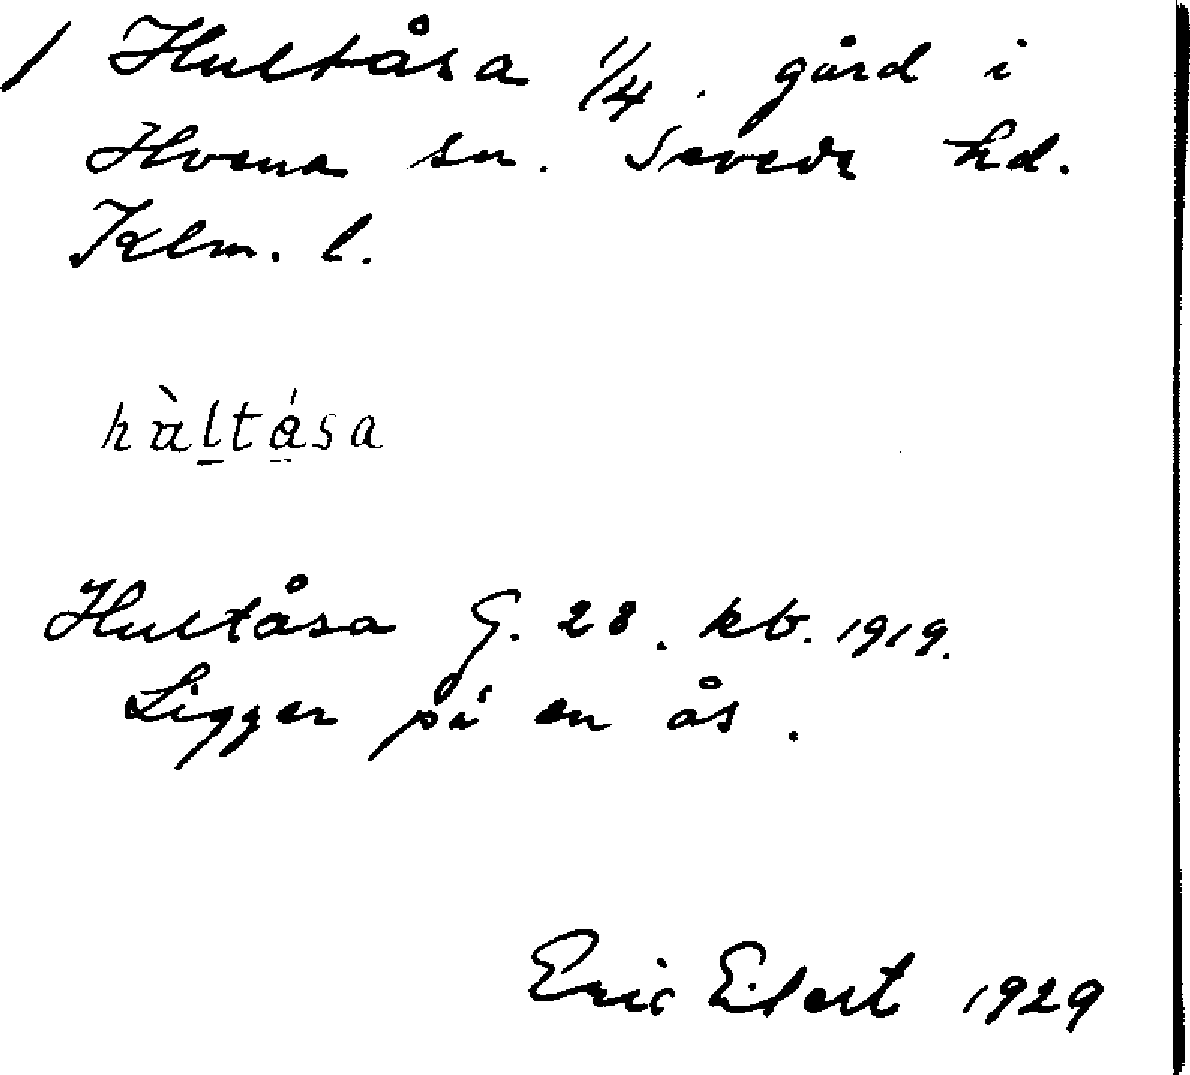 / Hultåsa 1/4. gård i
Hvena sn. Sevede hd.
Klm. l.
hùltása
Hultåsa G. 28. kb. 1919.
Ligger på en ås.
Eric Eilert 1929